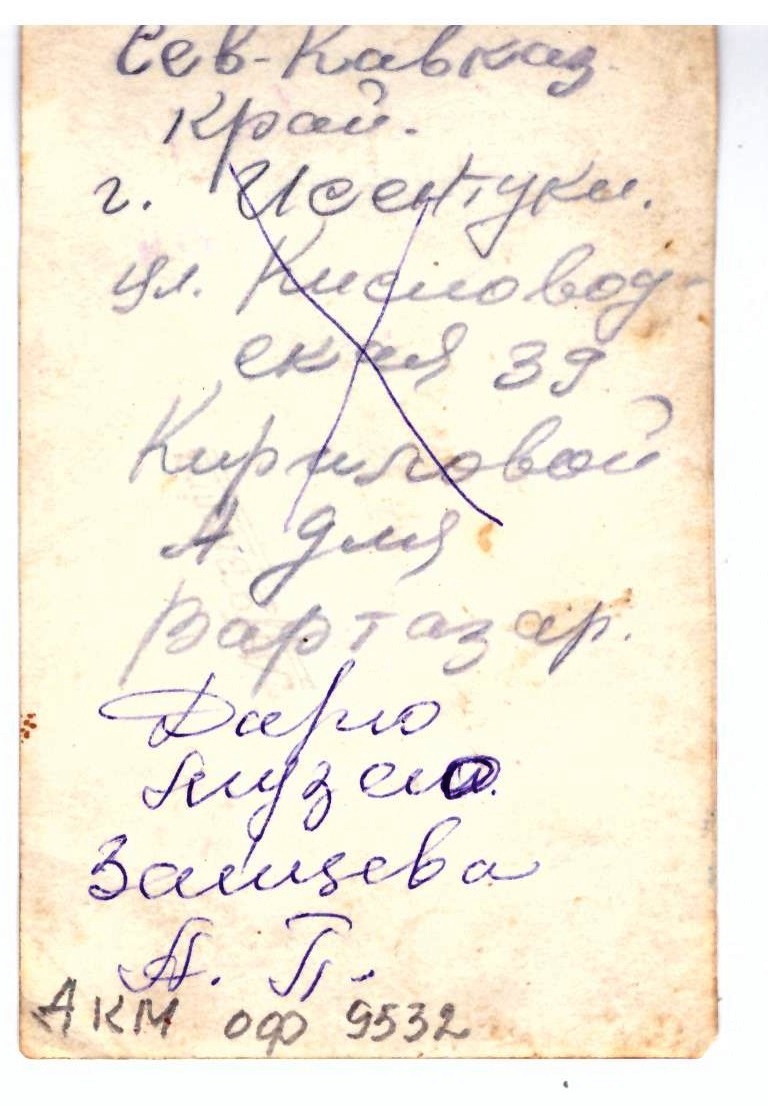 Сев-Кавказ.
край.
г. Исентуки.
ул. Кисловод-
ская 39
Кириловой
А для
Вартазар.
Дарю
музею.
Зайцева
А. П.
АКМ ОФ 9532